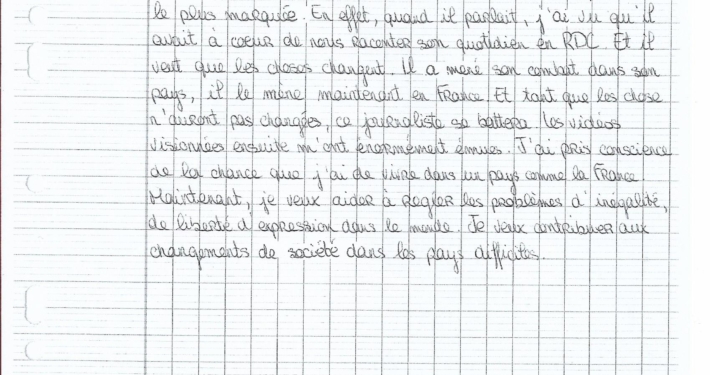 le plus marquée. En effet, quand il parlait, j'ai vu qu'il
avait à coeur de nous raconter son quotidien en RDC. Et il
veut que les choses changent. Il a mené son combat dans son
pays, il le mène maintenant en France. Et tant que les chose
n'auront pas changées, ce journaliste se battera. Les vidéos
visionnées ensuite m'ont énormément émues. J'ai pris conscience
de la chance que j'ai de vivre dans un pays comme la France
Maintenant, je veux aider à régler les problèmes d'inégalité,
de liberté d'expression dans le monde. Je veux contribuer aux
changements de société dans les pays difficiles.